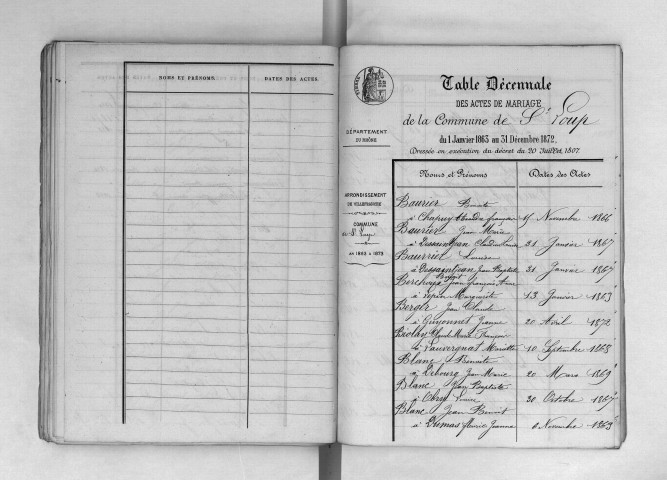 NOMS ET PRÉNOMS.
DATES DES ACTES.
TIMBRE
DÉPARTEMENT
DU RHÔNE
ARRONDISSEMENT
DE VILLEFRANCHE
COMMUNE
de St Loup
DE 1863 A 1873
Table Décennale
DES ACTES DE MARIAGE
de la Commune de St Loup
du 1 Janvier 1863 au 31 Décembre 1872,
Dressée en exécution du décret du 20 Juillet, 1807.
Noms et Prénoms
Dates des Actes
Baurier Benoite
à Chapuy Claudius françois 15 Novembre 1866
Baurier Jean Marie
à Dessaintjean Claudine 31 Janvier 1867
Baurrier Louise
à Dessaintjean Jean Baptiste 31 Janvier 1867
Berchoux Benoit Jean françois
à Pepin Marguerite 13 Janvier 1863
Berger Jean Claude
à Guyonnet Jeanne 20 Avril 1872
Biolay Claude Marie François
à Lauvergnat Mariette 10 Septembre 1868
Blanc Benoite
à Debourg Jean Marie 20 Mars 1869
Blanc Jean Baptiste
à Obry Louise 30 Octobre 1867
Blanc Jean Benoit
à Dumas fleurie Jeanne Novembre 1863